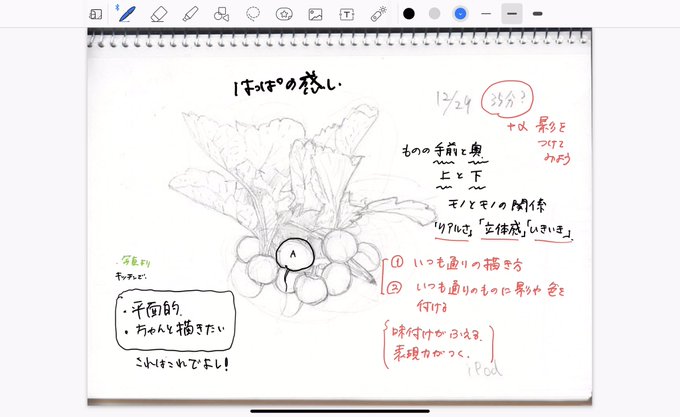 はっぱの感じ
12/29 35分?
+α 影を
つけて
みよう
ものの手前と奥
上と下
モノとモノの関係
「リアルさ」「立体感」「いきいき」
① いつも通りの描き方
② いつも通りのものに影や色を
付ける
味付けがふえる
表現力がつく。
iPad
A
・写真より
キッチンで
・平面的
・ちゃんと描きたい
これはこれでよし!
T